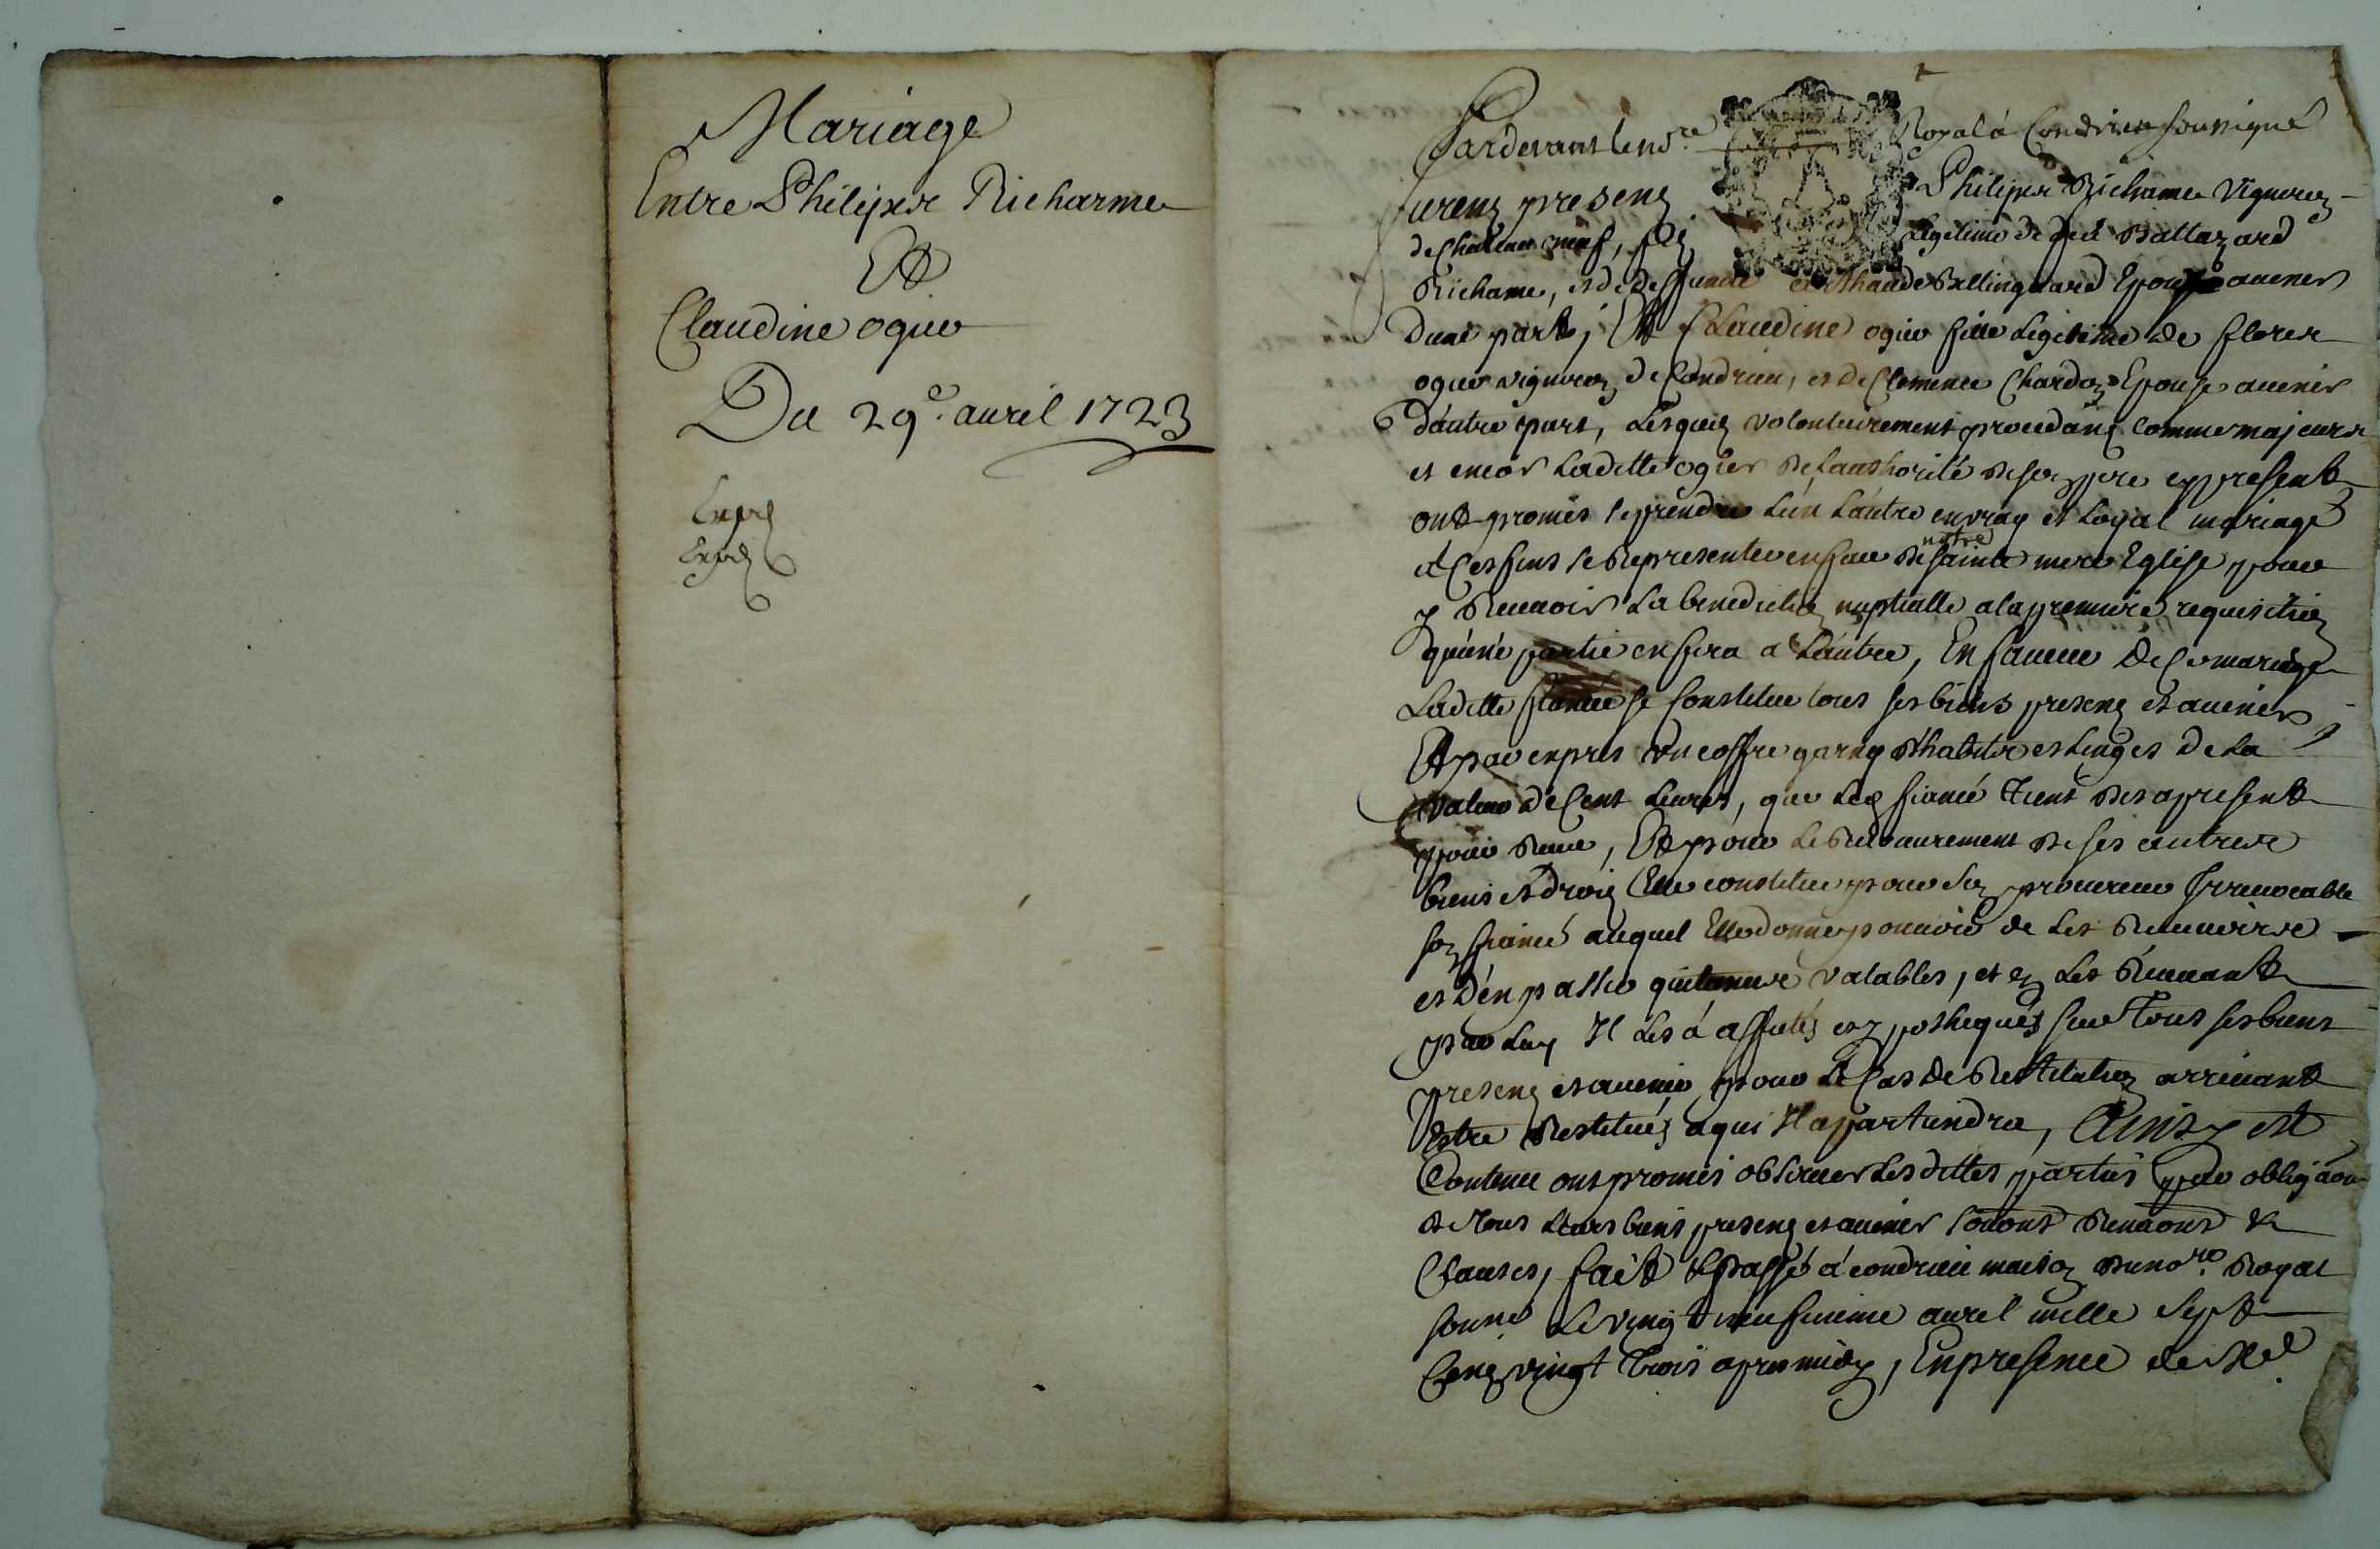 Mariage
Entre Philipes Richarme
Et
Claudine ogier
Du 29e. auril 1723
Expé
Expé
Pardevant le no.re Royal à Condrieu soussigné
furent presens Philipes Richarme Vigneron
de Chateauneuf, fils Legitime de feu Baltazard
Richarme, et de deffuncte Bellingard Epoux avenir
d'une part, Et Claudine ogier fille Legitime de fleury
ogier vigneron de Condrieu, et de Clemence Chardon Epouse avenir
d'autre part, Lesquels volontairement procedans comme majeurs
et encor Laditte ogier de Lauthorité de son pere cy present
ont promis se prendre L'un L'autre en vray et Loyal mariage
à Ces fins se Representer en face de notre sainte mere Eglise pour
y Recevoir La benediction nuptialle a la premiere requisition
qu'une partie en fera a L'autre, En faveur de Ce mariage
Laditte fiancée se Constitue tous ses biens presens et avenir,
Et par exprés Un coffre garny d'habits et Linges de La
valeur de Cent Livres, que Led. fiancé Tient des apresent
pour Receu, Et pour Le Recouvrement de ses autres
biens et droits Elle constitue pour son procureur Irrevocable
son fiancé auquel Elle donne pouvoir de Les Recevoir
et d'en passer quittances valables, et en Les Recevant
par Luy Il Les a affectés et ypothequés sur Tous ses biens
presens et avenir, pour Le Cas de Restitution arrivant
Estre Restitués a qui Il apartiendra, Ainsy et
Contenu ont promis observer Lesdittes parties par obligaon
de Tous Leurs biens presens et avenir soumons Renaons &
Clauses, fait & passé à condrieu maison du no.re Royal
soune. Le vingt neufvieme avril mille sept
Cens vingt Trois apres midy, En presence de